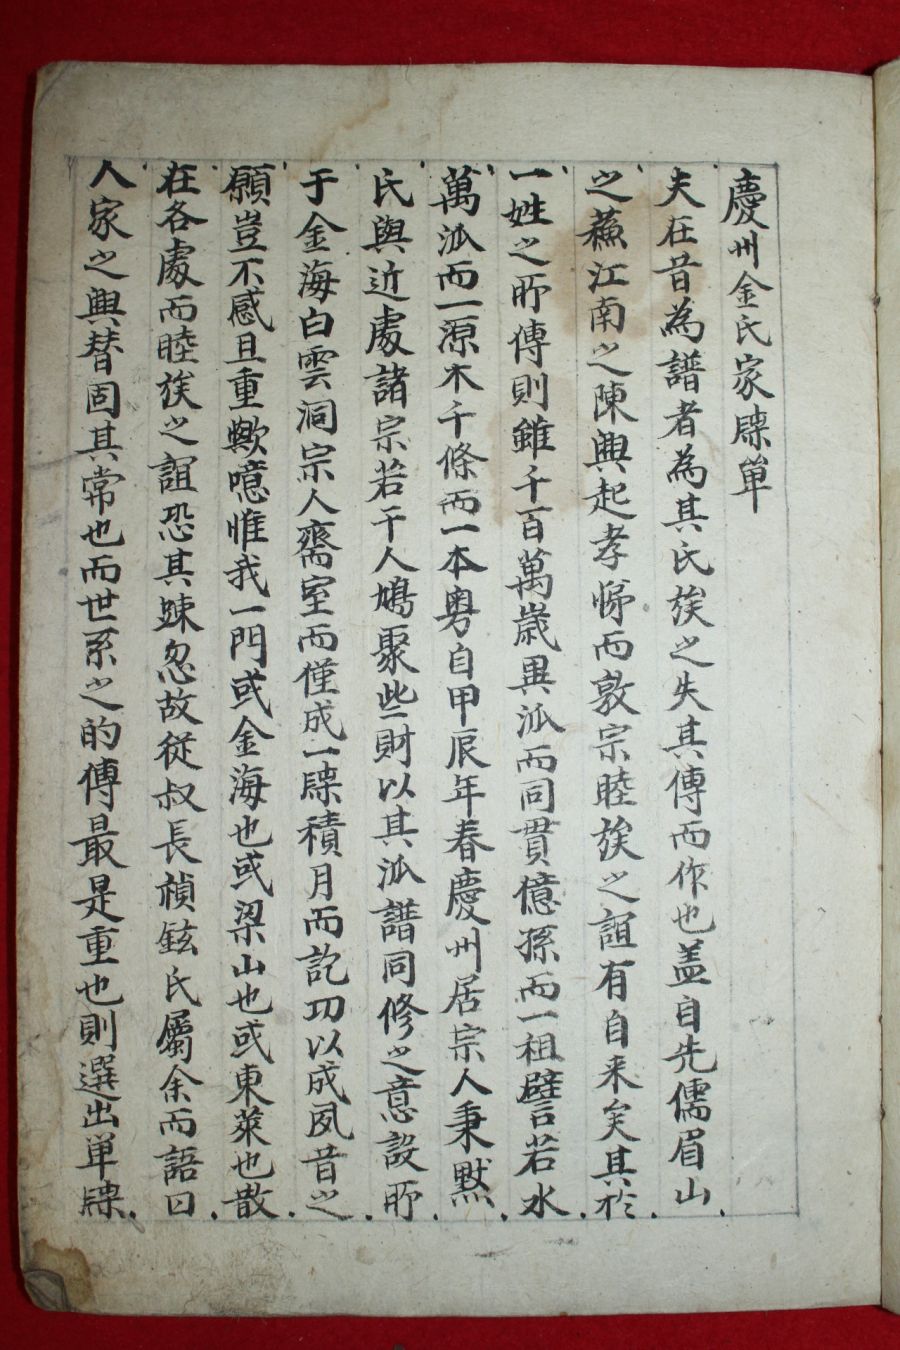 慶州金氏家牒單
夫在昔為譜者為其氏族之失其傳而作也盖自先儒眉山
之蘓江南之陳興起孝悌而敦宗睦族之誼有自来矣其於
一姓之所傳則雖千百萬歲異派而同貫億孫而一祖譬若水
萬派而一源木千條而一本粤自甲辰年春慶州居宗人秉默
氏與近處諸宗若干人鳩聚些財以其派譜同修之意設所
于金海白雲洞宗人齋室而僅成一牒積月而訖功以成夙昔之
願豈不感且重歟噫惟我一門或金海也或梁山也或東萊也散
在各處而睦族之誼恐其踈忽故從叔長禎鉉氏屬余而語曰
人家之興替固其常也而世系之的傳最是重也則選出単牒